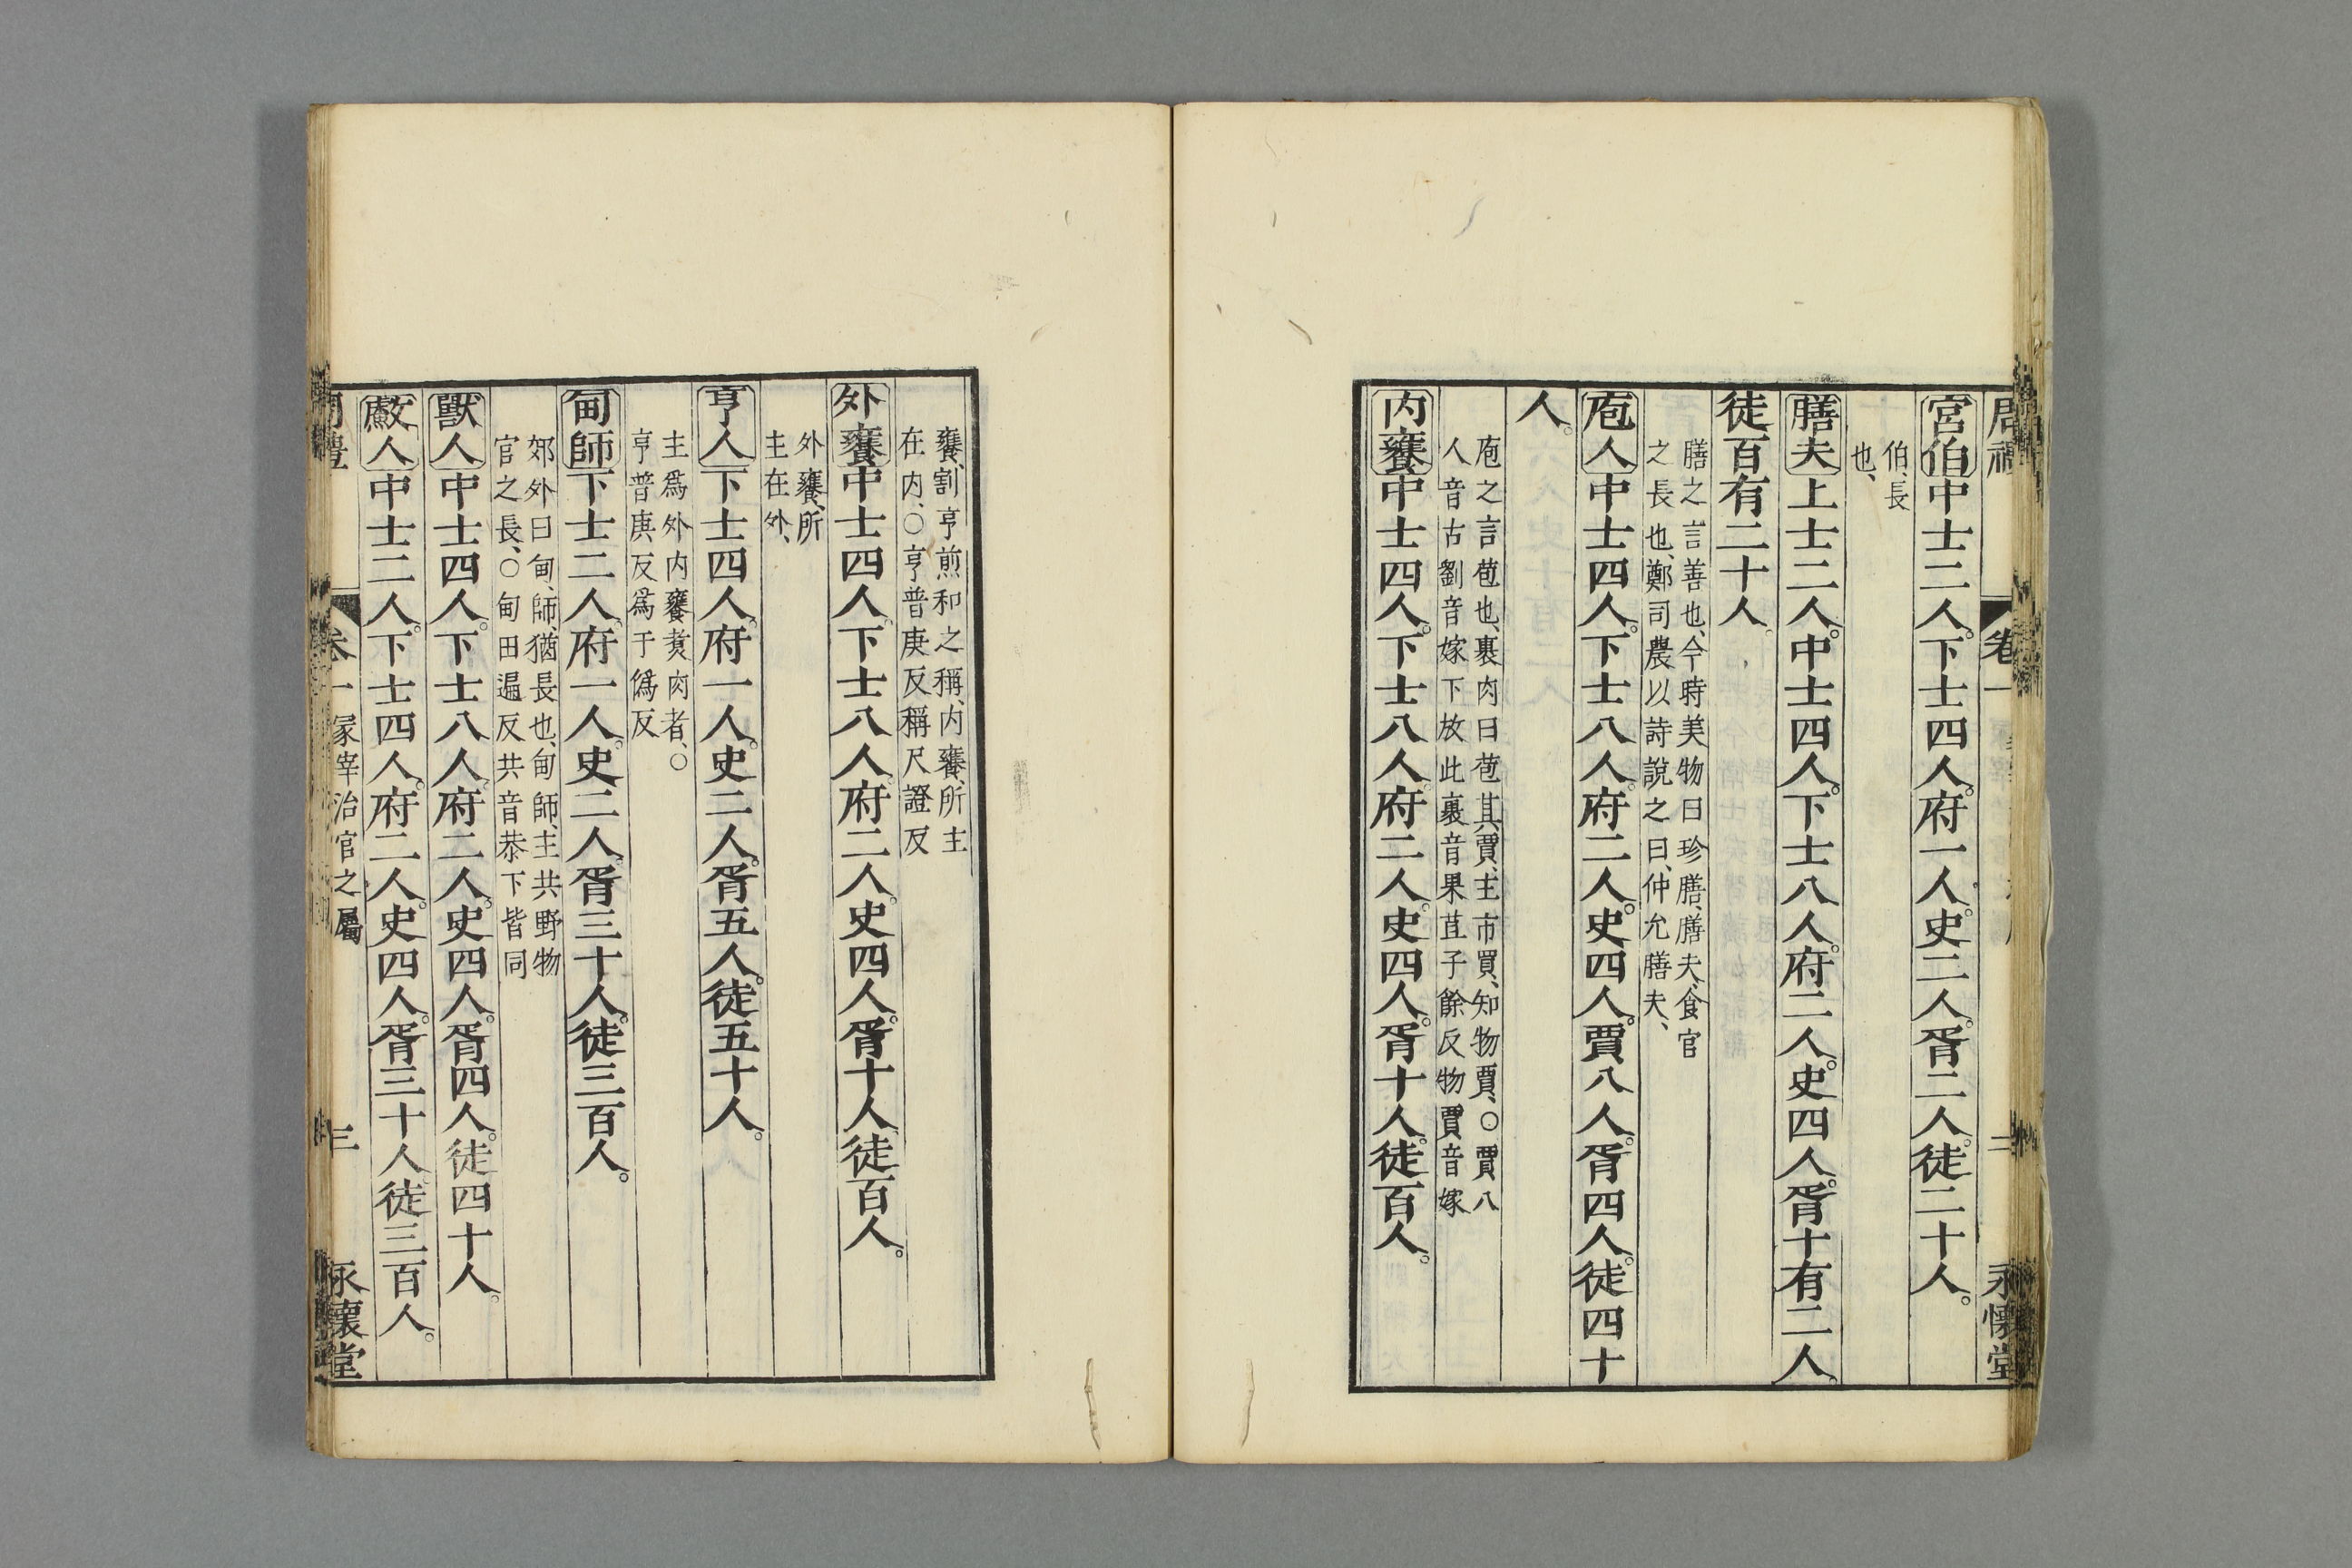 周禮
卷一
二
永懷堂
宮伯中士二人。下士四人。府一人。史二人。胥二人。徒二十人。
伯、長
也、
膳夫上士二人。中士四人。下士八人。府二人。史四人。胥十有二人。
徒百有二十人。
膳之言善也、今時美物曰珍膳、膳夫、食官
之長也、鄭司農以詩說之曰、仲允膳夫、
庖人中士四人。下士八人。府二人。史四人。賈八人。胥四人。徒四十
人。
庖之言苞也、裹肉曰苞苴、賈、主市買、知物賈、○賈八
人音古劉音嫁下放此裹音果苴子餘反物賈音嫁
内饔中士四人。下士八人。府二人。史四人。胥十人。徒百人。
饔、割亨煎和之稱、内饔、所主
在内、○亨普庚反稱尺證反
外饔中士四人。下士八人。府二人。史四人。胥十人。徒百人。
外饔、所
主在外、
亨人下士四人。府一人。史二人。胥五人。徒五十人。
主爲外内饔煑肉者、○
亨普庚反爲于僞反
甸師下士二人。府一人。史二人。胥三十人。徒三百人。
郊外曰甸、師、猶長也、甸師、主共野物
官之長、○甸田遍反共音恭下皆同
獸人中士四人。下士八人。府二人。史四人。胥四人。徒四十人。
䱷人中士二人。下士四人。府二人。史四人。胥三十人。徒三百人。
周禮
卷一
冢宰治官之屬
三
永懷堂